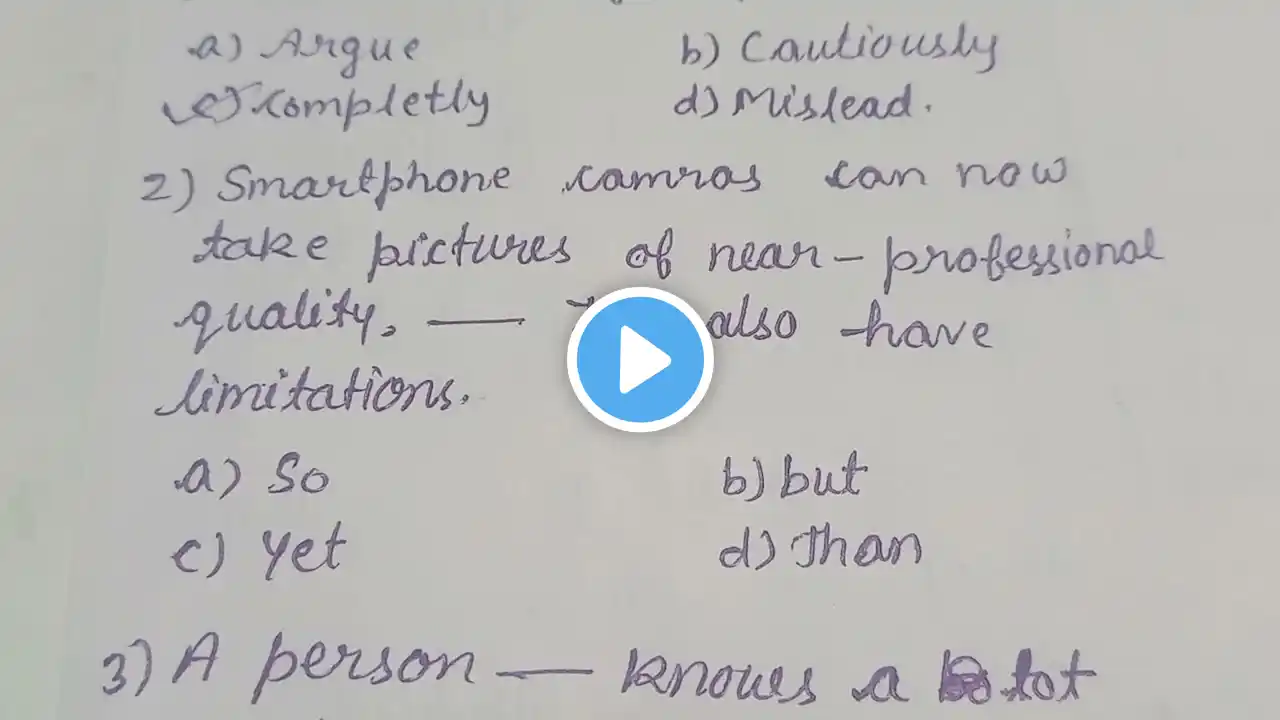 a) Argue b) Cautiously
c) completly d) Mislead.
2) Smartphone camras can now
take pictures of near-professional
quality, — also have
limitations.
a) So b) but
c) Yet d) Than
3) A person — knows a lot